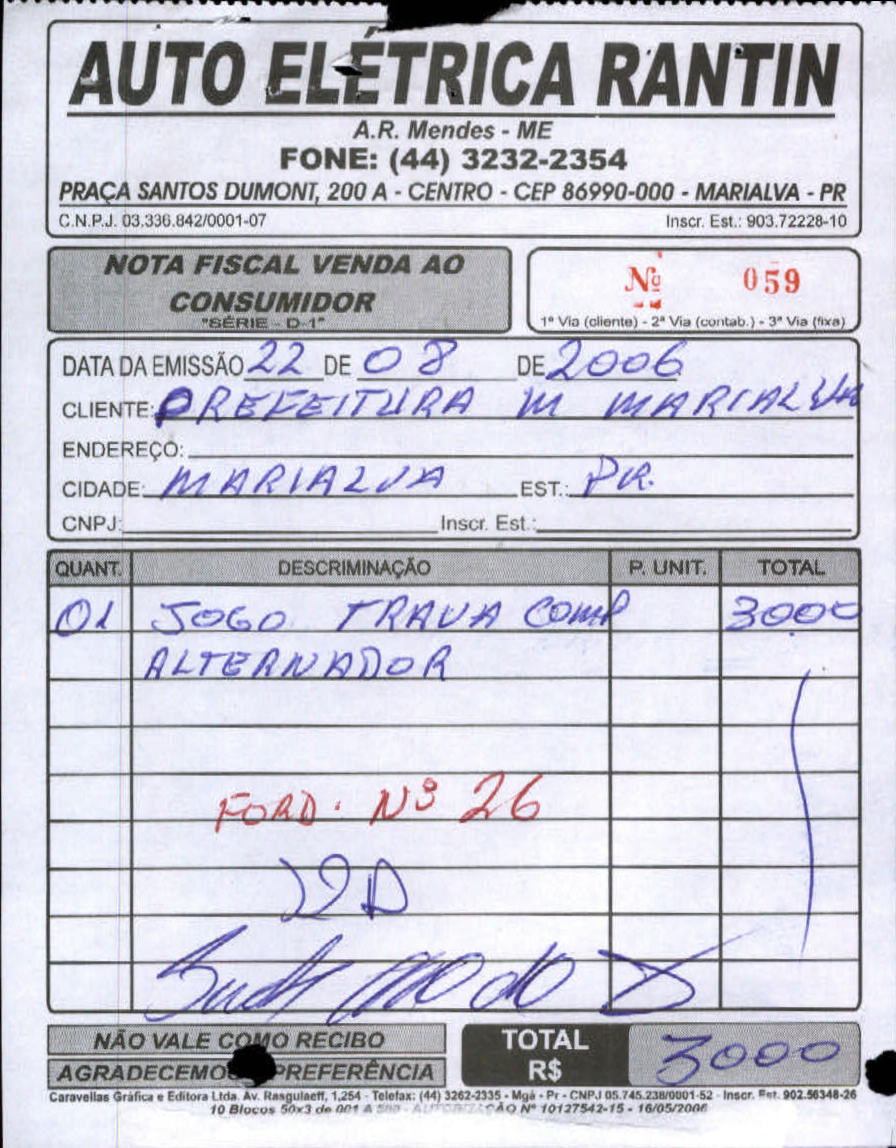 AUTO ELÉTRICA RANTIN
A.R. Mendes - ME
FONE: (44) 3232-2354
PRAÇA SANTOS DUMONT, 200 A - CENTRO - CEP 86990-000 - MARIALVA - PR
C.N.P.J. 03.336.842/0001-07 Inscr. Est.: 903.72228-10
NOTA FISCAL VENDA AO
CONSUMIDOR
"SÉRIE - D-1"
Nº 059
1ª Via (cliente) - 2ª Via (contab.) - 3ª Via (fixa)
DATA DA EMISSÃO 22 DE 08 DE 2006
CLIENTE: PREFEITURA M MARIALVA
ENDEREÇO:
CIDADE: MARIALVA EST.: PR.
CNPJ: Inscr. Est.:
QUANT. DESCRIMINAÇÃO P. UNIT. TOTAL
01 JOGO TRAVA COMP 3000
ALTERNADOR
FORD. Nº 26
NÃO VALE COMO RECIBO
AGRADECEMOS PREFERÊNCIA
TOTAL
R$ 3000
Caravellas Gráfica e Editora Ltda. Av. Rasgulaeff, 1,254 - Telefax: (44) 3262-2335 - Mgá - Pr - CNPJ 05.745.238/0001-52 - Inscr. Est. 902.56348-26
10 Blocos 50x3 de 001 A 500 - AUTORIZAÇÃO Nº 10127542-15 - 16/05/2006